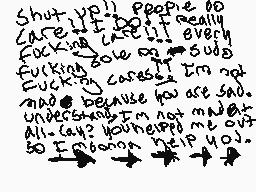 Shut up!! people DO
care!! I DO! I really
fucking care!!! every
fucking sole on sudo
fucking cares!! I'm not
mad because you are sad.
understand, I'm not mad at
all. Cay? you helped me out
so I'm gonna help you.